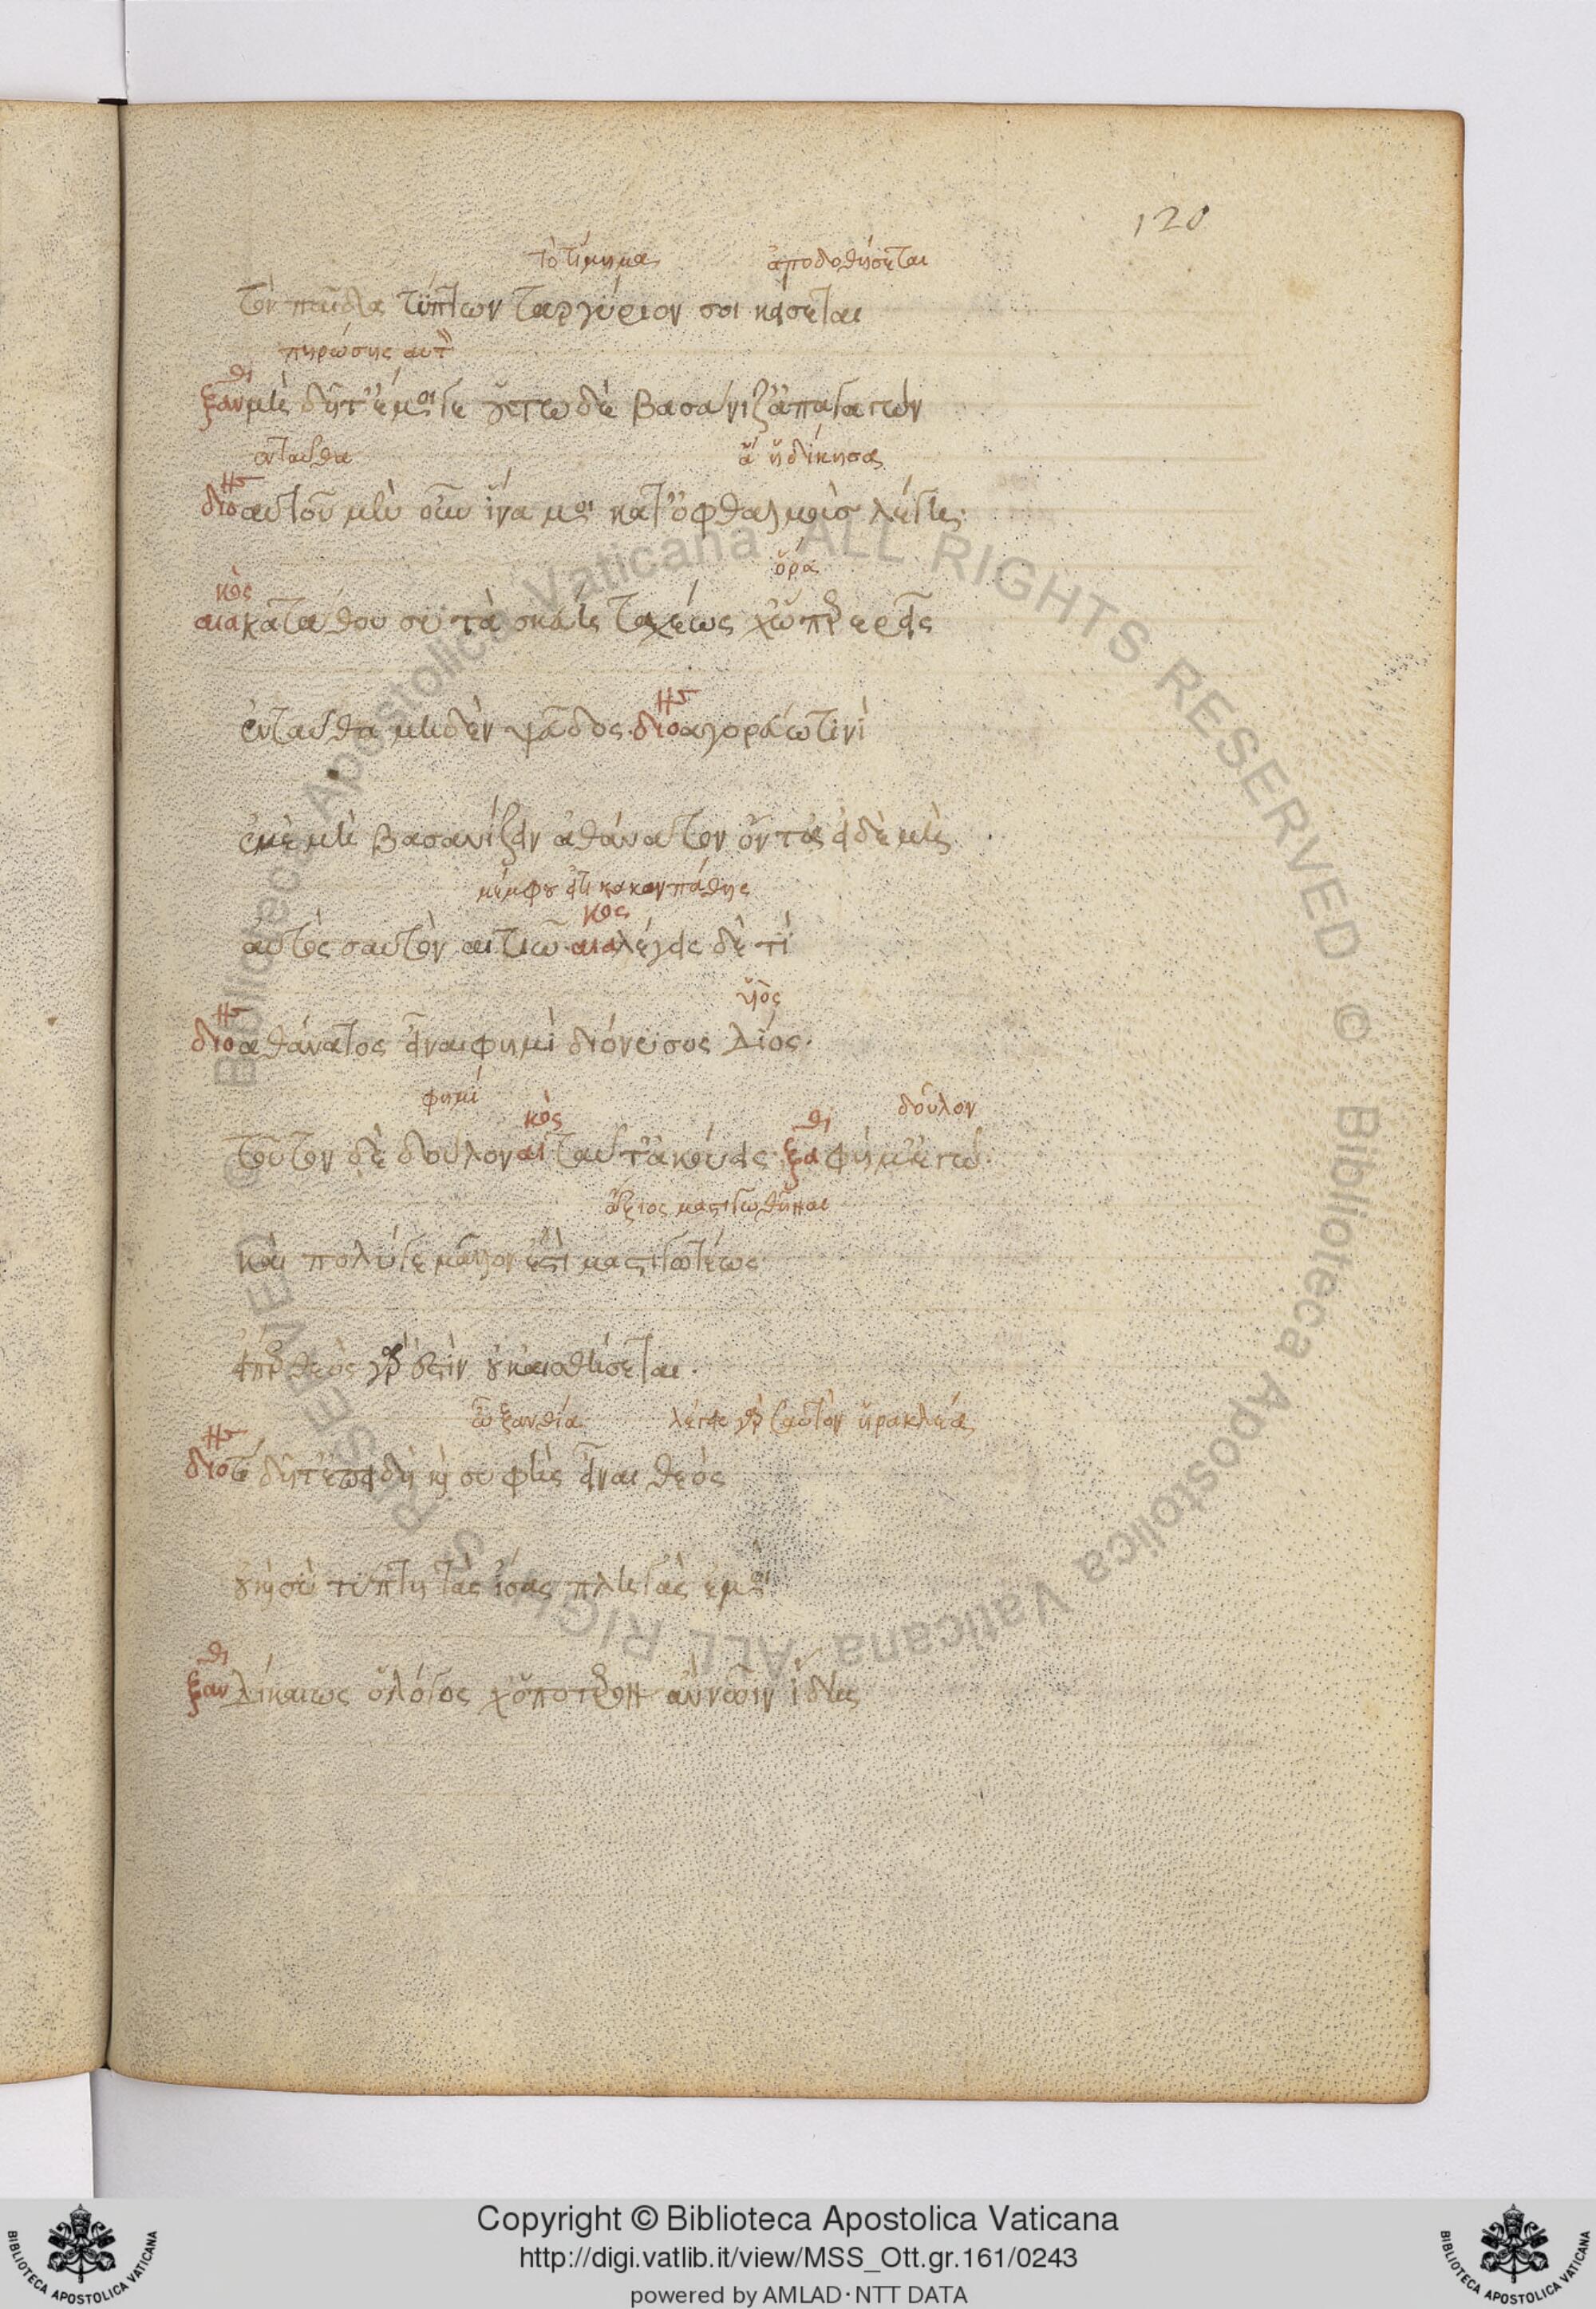 120
τὸ τίμημα ἀποδοθήσεται
τὸν παῖδα τύπτων ταργύριον σοι κείσεται
πηρώσης αὐτὸν
ξανθι μὴ δῆτ' ἔμοιγε οὕτω δὲ βασάνιζ' ἀπαγαγών
ἐνταῦθα ἃ ἠδίκησας
διο αὐτοῦ μὲν οὖν ἵνα μοι κατ' ὀφθαλμοὺς λέγης·
ὅρα
αιακὸς κατάθου σὺ τὰ σκεύη ταχέως χὤπως ἐρεῖς
ἐνταῦθα μηδὲν ψεῦδος· διο ἀγορεύω τινὶ
ἐμὲ μὴ βασανίζειν ἀθάνατον ὄντ' εἰ δὲ μὴ
μέμφου ὅτι κακὸν πάθης
αὐτὸς σαυτὸν αἰτιῶ· αιακος λέγεις δὲ τί
υἱὸς
διο ἀθάνατος εἶναι φημὶ διόνυσος διός·
φημί δοῦλον
τοῦτον δὲ δοῦλον αικὸς ταῦτ' ἀκούεις· ξαθι φήμ' ἐγώ·
ἄξιος μαστιγωθῆναι
καὶ πολύ γε μᾶλλον ἐστὶ μαστιγωτέος·
εἴπερ θεὸς γάρ ἐστιν οὐκ αἰσθήσεται·
ὦ ξανθία λέγε γὰρ ἑαυτὸν ἡρακλέα
διο τί δῆτ' ἐπειδὴ καὶ σὺ φὴς εἶναι θεὸς
οὐ καὶ σὺ τύπτη τὰς ἴσας πληγὰς ἐμοί
ξανθι δίκαιος ὁ λόγος χὠπότερον ἂν νῶιν ἴδης
Copyright © Biblioteca Apostolica Vaticana
http://digi.vatlib.it/view/MSS_Ott.gr.161/0243
powered by AMLAD·NTT DATA
BIBLIOTECA APOSTOLICA VATICANA
BIBLIOTECA APOSTOLICA VATICANA
© Biblioteca Apostolica Vaticana ALL RIGHTS RESERVED © Biblioteca Apostolica Vaticana ALL RIGHTS RESERVED